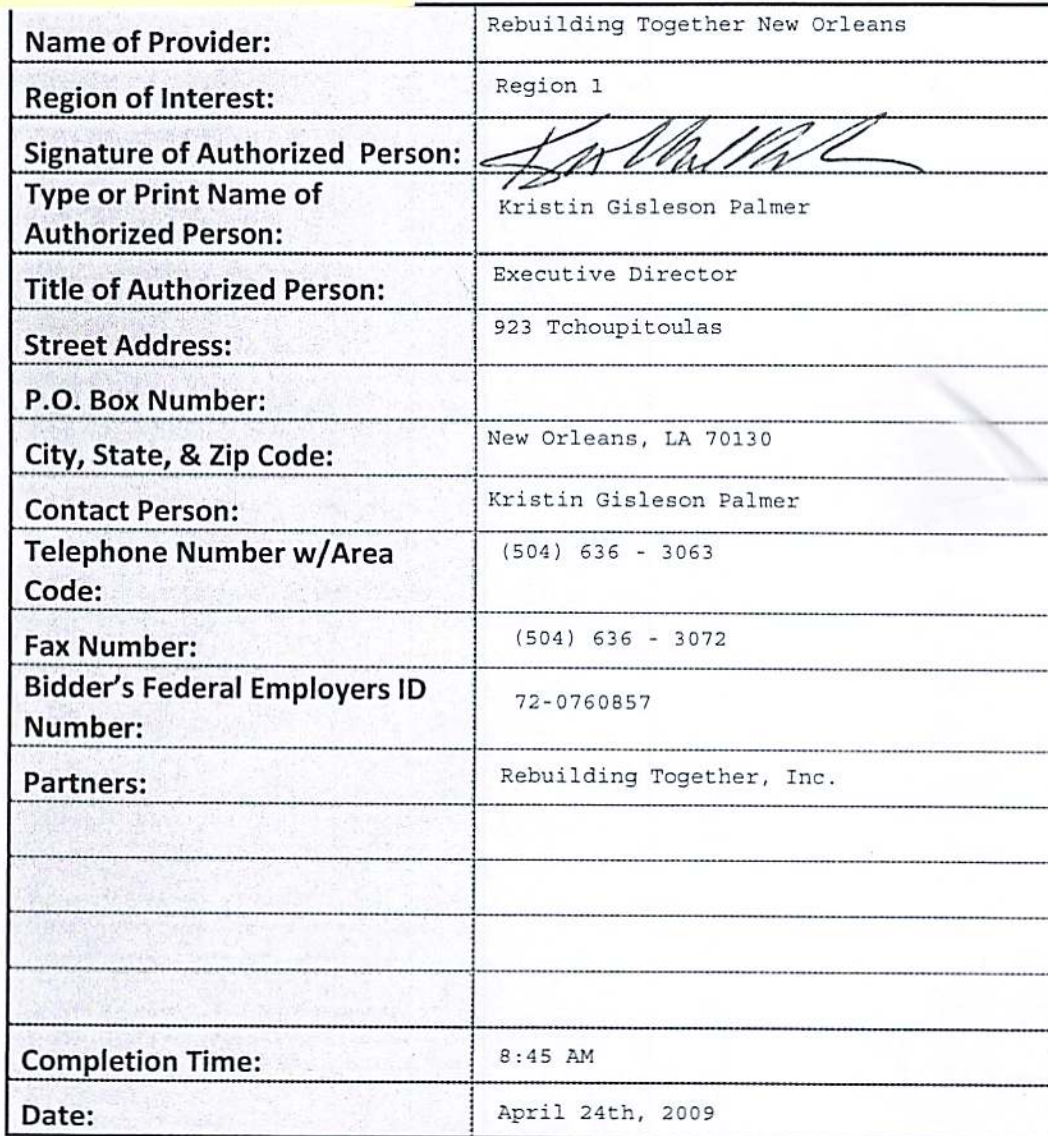 Name of Provider: Rebuilding Together New Orleans
Region of Interest: Region 1
Signature of Authorized Person:
Type or Print Name of
Authorized Person: Kristin Gisleson Palmer
Title of Authorized Person: Executive Director
Street Address: 923 Tchoupitoulas
P.O. Box Number:
City, State, & Zip Code: New Orleans, LA 70130
Contact Person: Kristin Gisleson Palmer
Telephone Number w/Area (504) 636 - 3063
Code:
Fax Number: (504) 636 - 3072
Bidder's Federal Employers ID 72-0760857
Number:
Partners: Rebuilding Together, Inc.
Completion Time: 8:45 AM
Date: April 24th, 2009